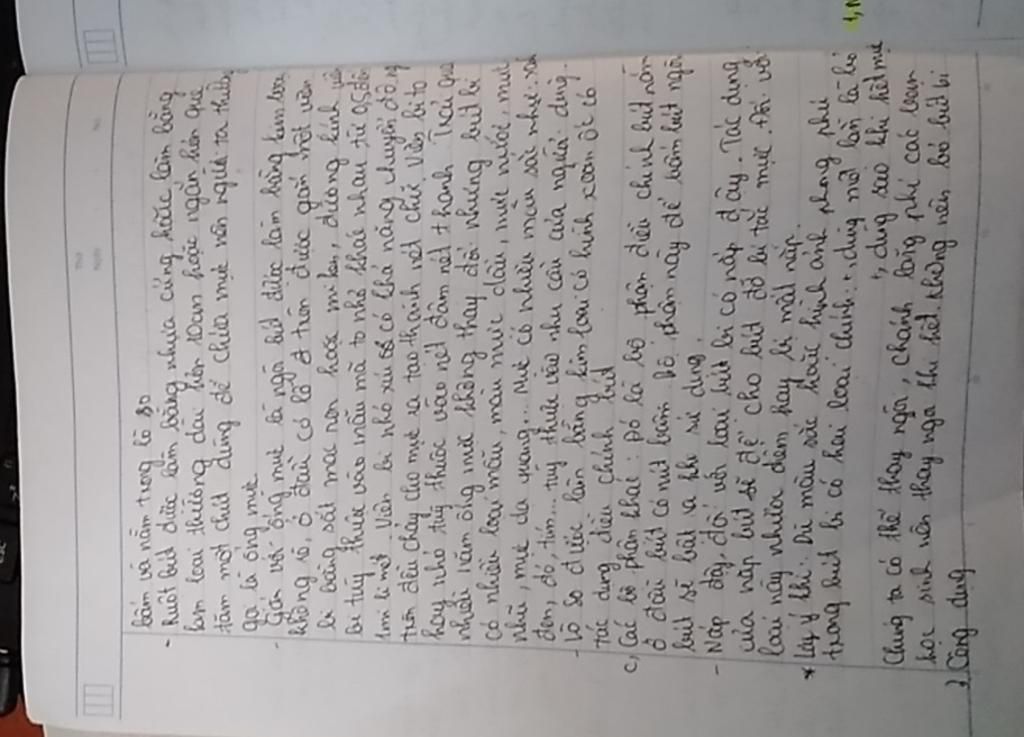 bấm và nằm trong lò so
- Ruột bút được làm bằng nhựa cứng hoặc làm bằng
kim loại thường dài hơn 10cm hoặc ngắn hơn que
tăm một chút dùng để chứa mực nên người ta thường
gọi là ống mực.
- Gắn với ống mực là ngòi bút được làm bằng kim loại
không rỉ, ở đầu có lỗ ở trên được gắn một viên
bi bằng sắt mạ hoặc mi ken, đường kính viên
bi tuỳ thuộc vào mẫu mã to nhỏ khác nhau từ 0,5 đến
1 mi li mét. Viên bi nhỏ xíu có khả năng chuyển động
tròn đều chảy cho mực ra tạo thành nét chữ. Viên bi to
hay nhỏ tuỳ thuộc vào nét đậm nét thanh. Trải qua
nhiều năm ống mực không thay đổi nhưng bút bi
có nhiều loại mẫu, màu mực dầu, mực nước, mực
nhũ, mực dạ quang... Mực có nhiều màu sắc như: xanh
đen, đỏ, tím... tuỳ thuộc vào nhu cầu của người dùng.
- Lò so được làm bằng kim loại có hình xoắn ốc có
tác dụng điều chỉnh bút
c, Các bộ phận khác: Đó là bộ phận điều chỉnh bút nằm
ở đầu bút có nút bấm. Bộ phận này để bấm bút ngòi
bút sẽ bật ra khi sử dụng.
- Nắp đậy, đối với loại bút bi có nắp đậy. Tác dụng
của nắp bút sẽ để cho bút đỡ bị tắc mực. Đối với
loại này nhược điểm hay bị mất nắp.
* Lưu ý thì: Dù màu sắc hoặc hình ảnh phong phú
trong bút bi có hai loại chính: + dùng một lần là bỏ
+, dùng sau khi hết mực
Chúng ta có thể thay ngòi, chánh lãng phí các bạn
học sinh nên thay ngòi khi hết không nên bỏ bút bi
2 Công dụng